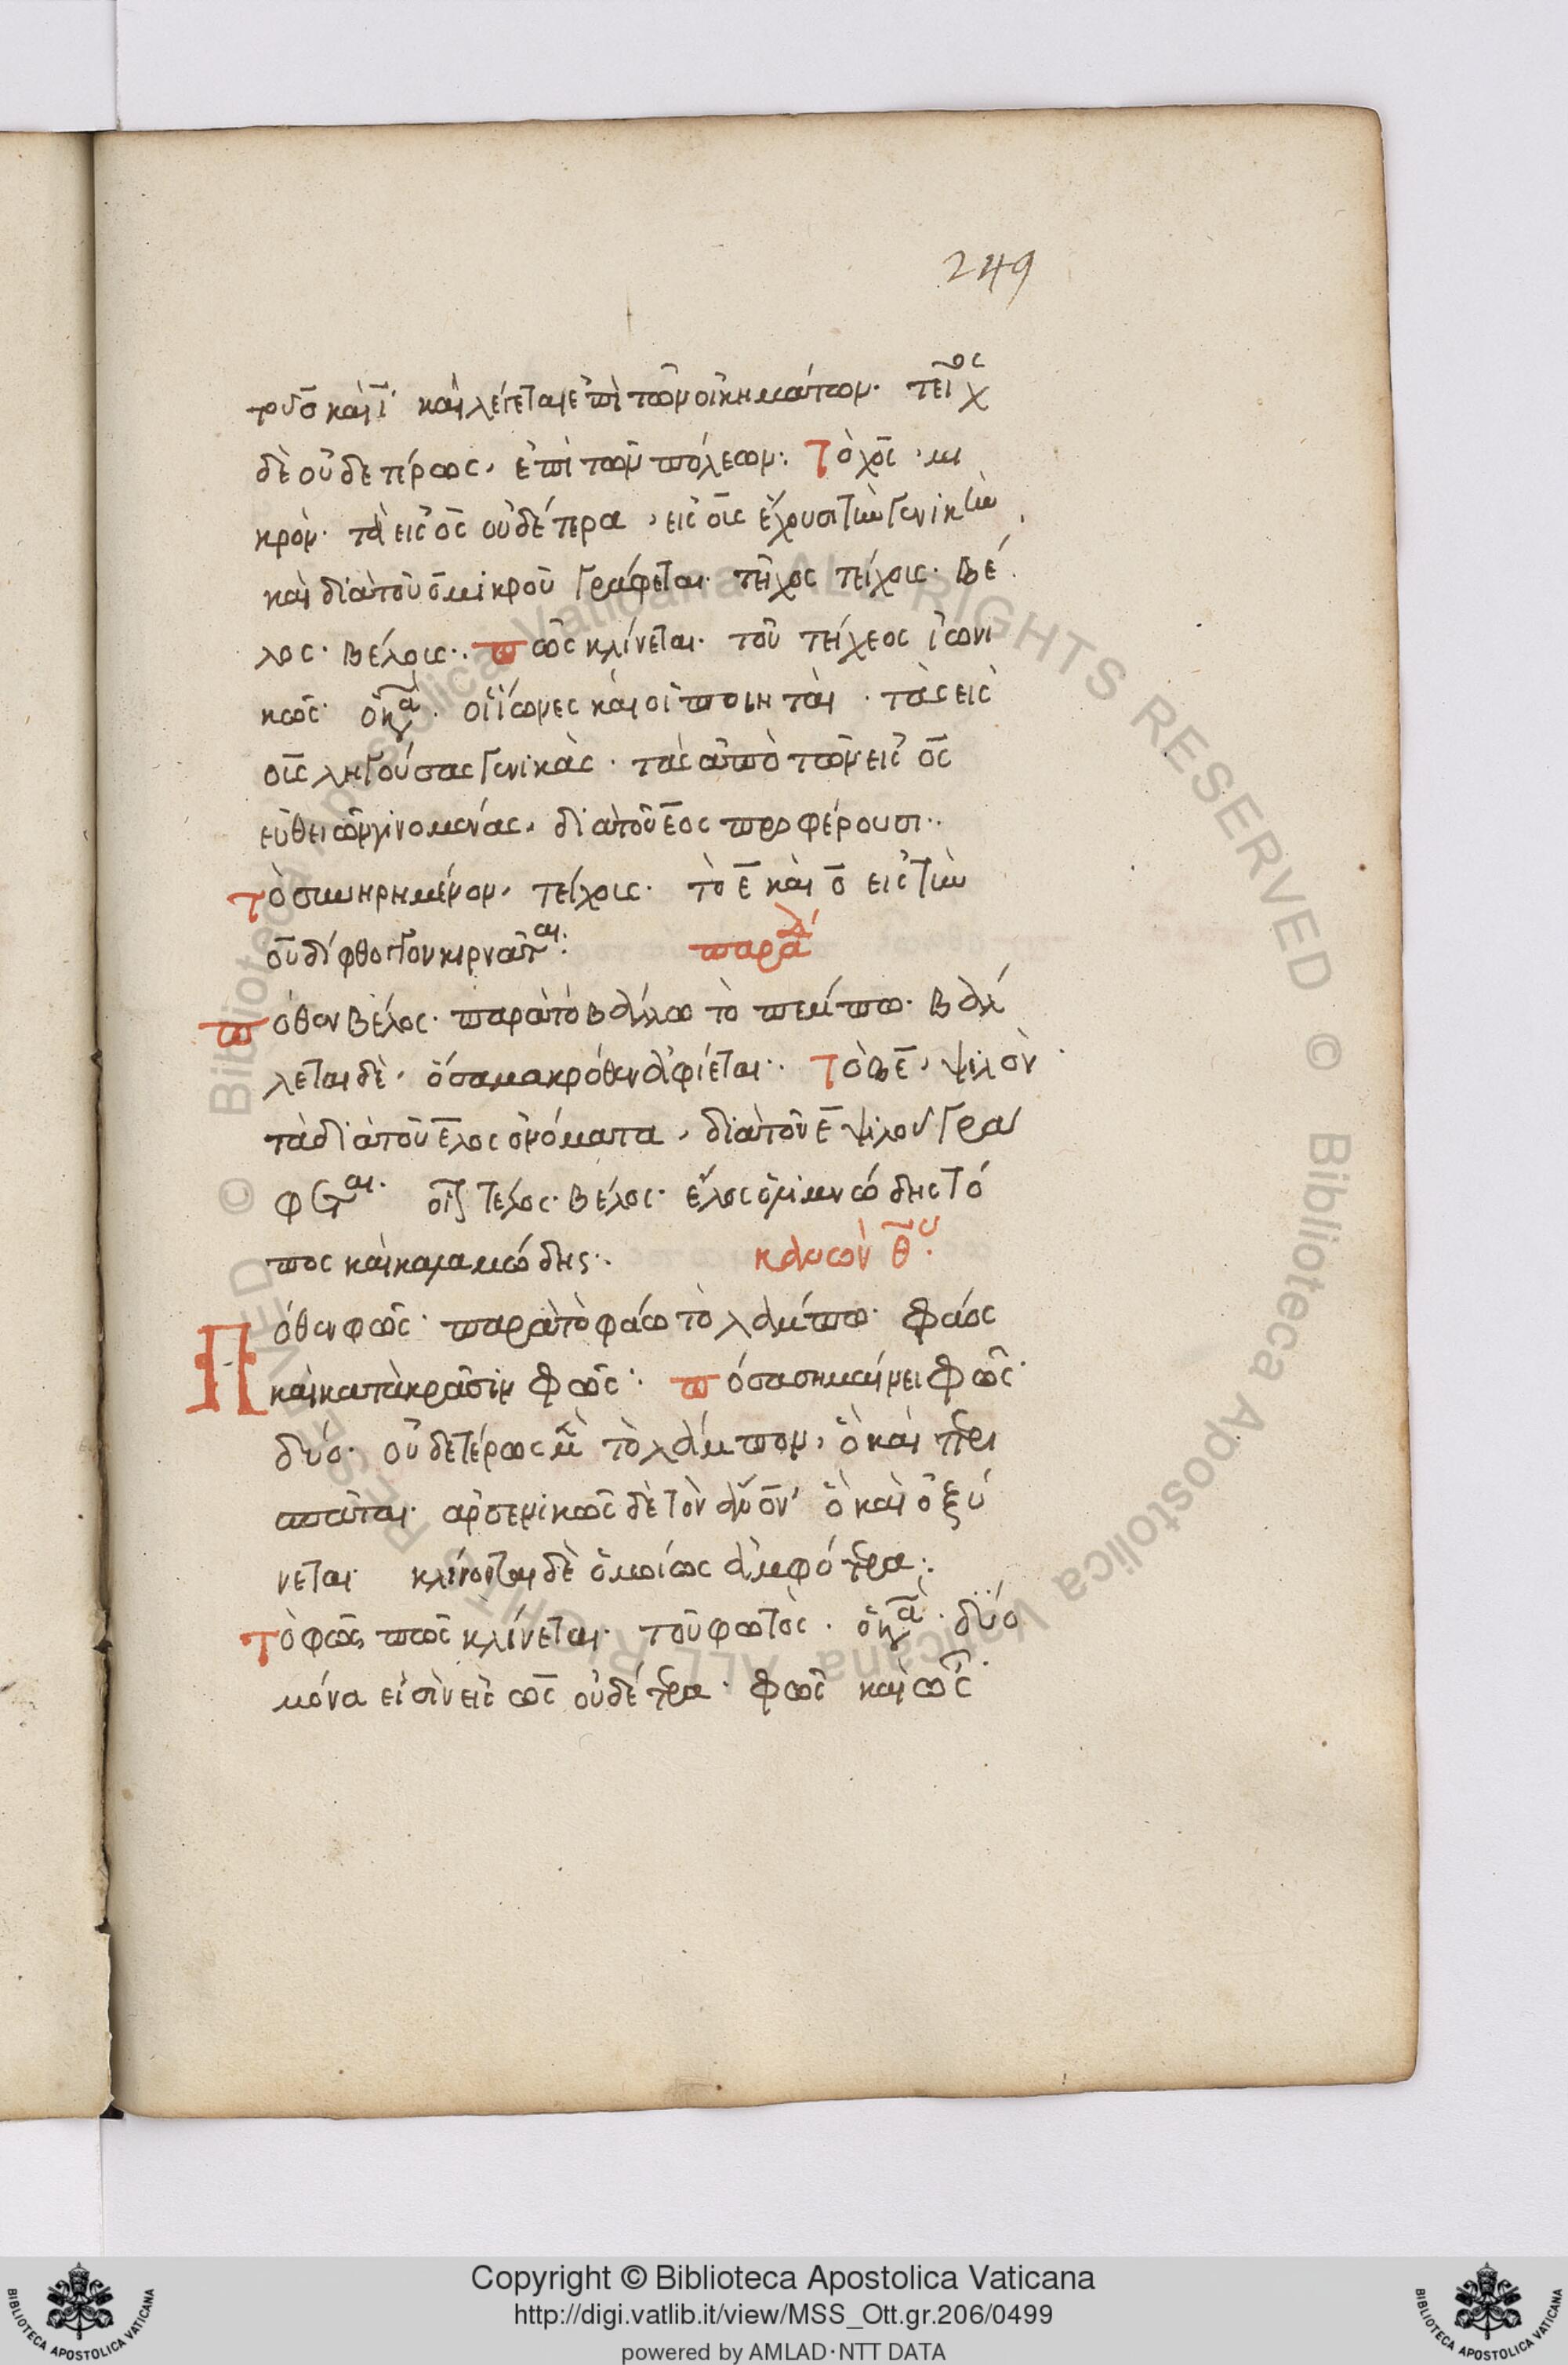 249
του ο̅ καὶ ι̅· καὶ λέγεται ἐπὶ τῶν οἰκημάτων· τεῖχος
δὲ οὐδετέρως, ἐπὶ τῶν πόλεων: Τὸ χο̅ς, μι
κρόν· τὰ εἰς ο̅ς οὐδέτερα, εἰς ο̅υς ἔχουσι τὴν γενικὴν,
καὶ διὰ τοῦ ο̅ μικροῦ γράφεται· τεῖχος τείχους· βέ
λος· βέλους: πῶς κλίνεται· τοῦ τείχεος ἰωνι
κῶς· ὁ κανών· οἱ ἴωνες καὶ οἱ ποιηταὶ· τὰς εἰς
ο̅υς ληγούσας γενικὰς· τὰς ἀπὸ τῶν εἰς ο̅ς
εὐθειῶν γινομένας, διὰ τοῦ ε̅ο̅ς προφέρουσι:
τὸ συνηρημένον, τείχους· τὸ ε̅ καὶ ο̅ εἰς τὴν
ο̅υ δίφθογγον κιρνᾶται: παρα
πόθεν βέλος· παρὰ τὸ βάλλω τὸ πέμπω· βάλ
λεται δὲ, ὅσα μακρόθεν ἀφίεται: Τὸ βε̅, ψιλὸν·
τὰ διὰ τοῦ ε̅λος ὀνόματα, διὰ τοῦ ε̅ ψιλοῦ γρά
φεται· οἷον τέλος· βέλος· ἕλος ὁ λιμνώδης τό
πος καὶ καλαμώδης: κανὼν θ̅
Πόθεν φῶς· παρὰ τὸ φάω τὸ λάμπω· φάος
καὶ κατὰ κρᾶσιν φῶς: πόσα σημαίνει φῶς·
δύο· οὐδετέρως μὲν τὸ λάμπον, ὃ καὶ περι
σπᾶται· ἀρσενικῶς δὲ τὸν ἄνον· ὃ καὶ ὀξύ
νεται κλίνονται δὲ ὁμοίως ἀμφότερα:
τὸ φῶς πῶς κλίνεται· τοῦ φωτὸς· ὁ κανών· δύο
μόνα εἰσὶν εἰς ω̅ς οὐδέτερα· φῶς καὶ ὦς·
Copyright © Biblioteca Apostolica Vaticana
http://digi.vatlib.it/view/MSS_Ott.gr.206/0499
powered by AMLAD·NTT DATA
BIBLIOTECA APOSTOLICA VATICANA
BIBLIOTECA APOSTOLICA VATICANA
© Biblioteca Apostolica Vaticana ALL RIGHTS RESERVED
© Biblioteca Apostolica Vaticana ALL RIGHTS RESERVED